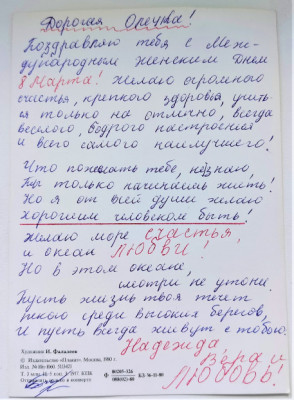 Дорогая Олечка!
Поздравляю тебя с Меж-
дународным женским Днем
8 Марта! Желаю огромного
счастья, крепкого здоровья, учить-
ся только на отлично, всегда
веселого, бодрого настроения
и всего самого наилучшего!
Что пожелать тебе, не знаю,
Ты только начинаешь жить!
Но я от всей души желаю
хорошим человеком быть!
Желаю море счастья
и океан Любви!
Но в этом океане,
смотри не утони.
Пусть жизнь твоя течет
тихо среди высоких берегов,
И пусть всегда живут с тобою
Надежда,
Вера и
Любовь!
Художник И.
© Издательство «Планета». Москва, 1980 г.